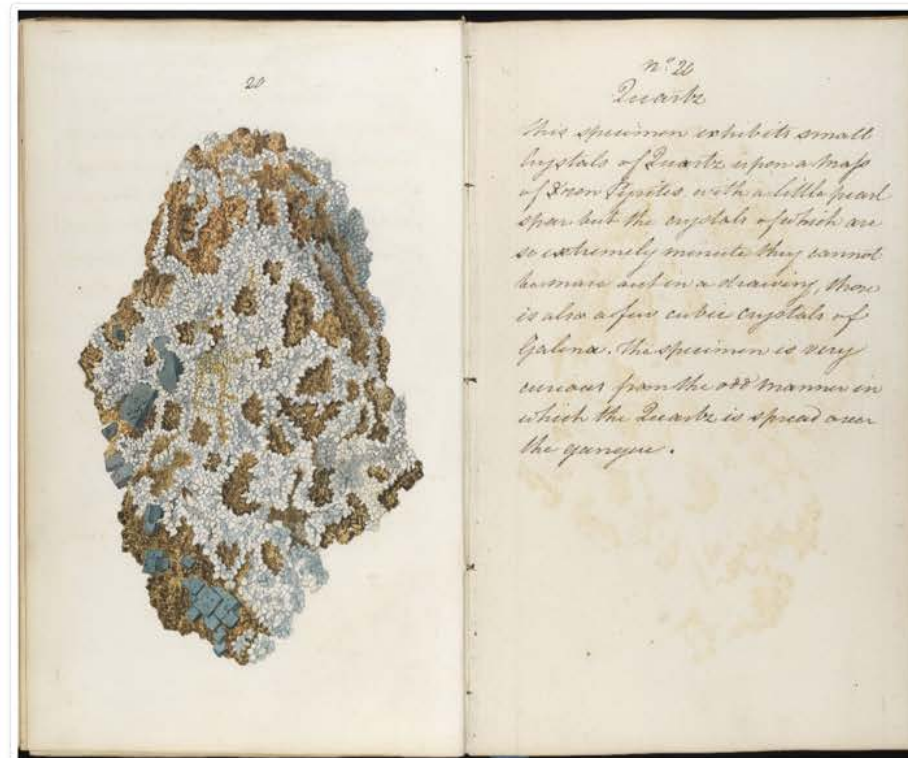 20
no. 20
Quartz
This specimen exhibits small
Crystals of Quartz upon a mass
of Iron Pyrites, with a little pearl
spar but the crystals of which are
so extremely minute they cannot
be made out in a drawing, there
is also a few cubic crystals of
Galena. The specimen is very
curious from the odd manner in
which the Quartz is spread over
the gangue.